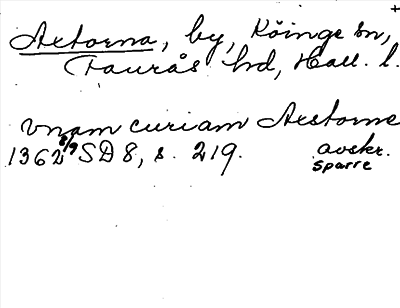 +
Axtorna, by, Köinge sn,
Faurås hd, Hall. l.
vnam curiam Axstorne
1362 8/9 SD 8, s. 219. avskr.
Sparre